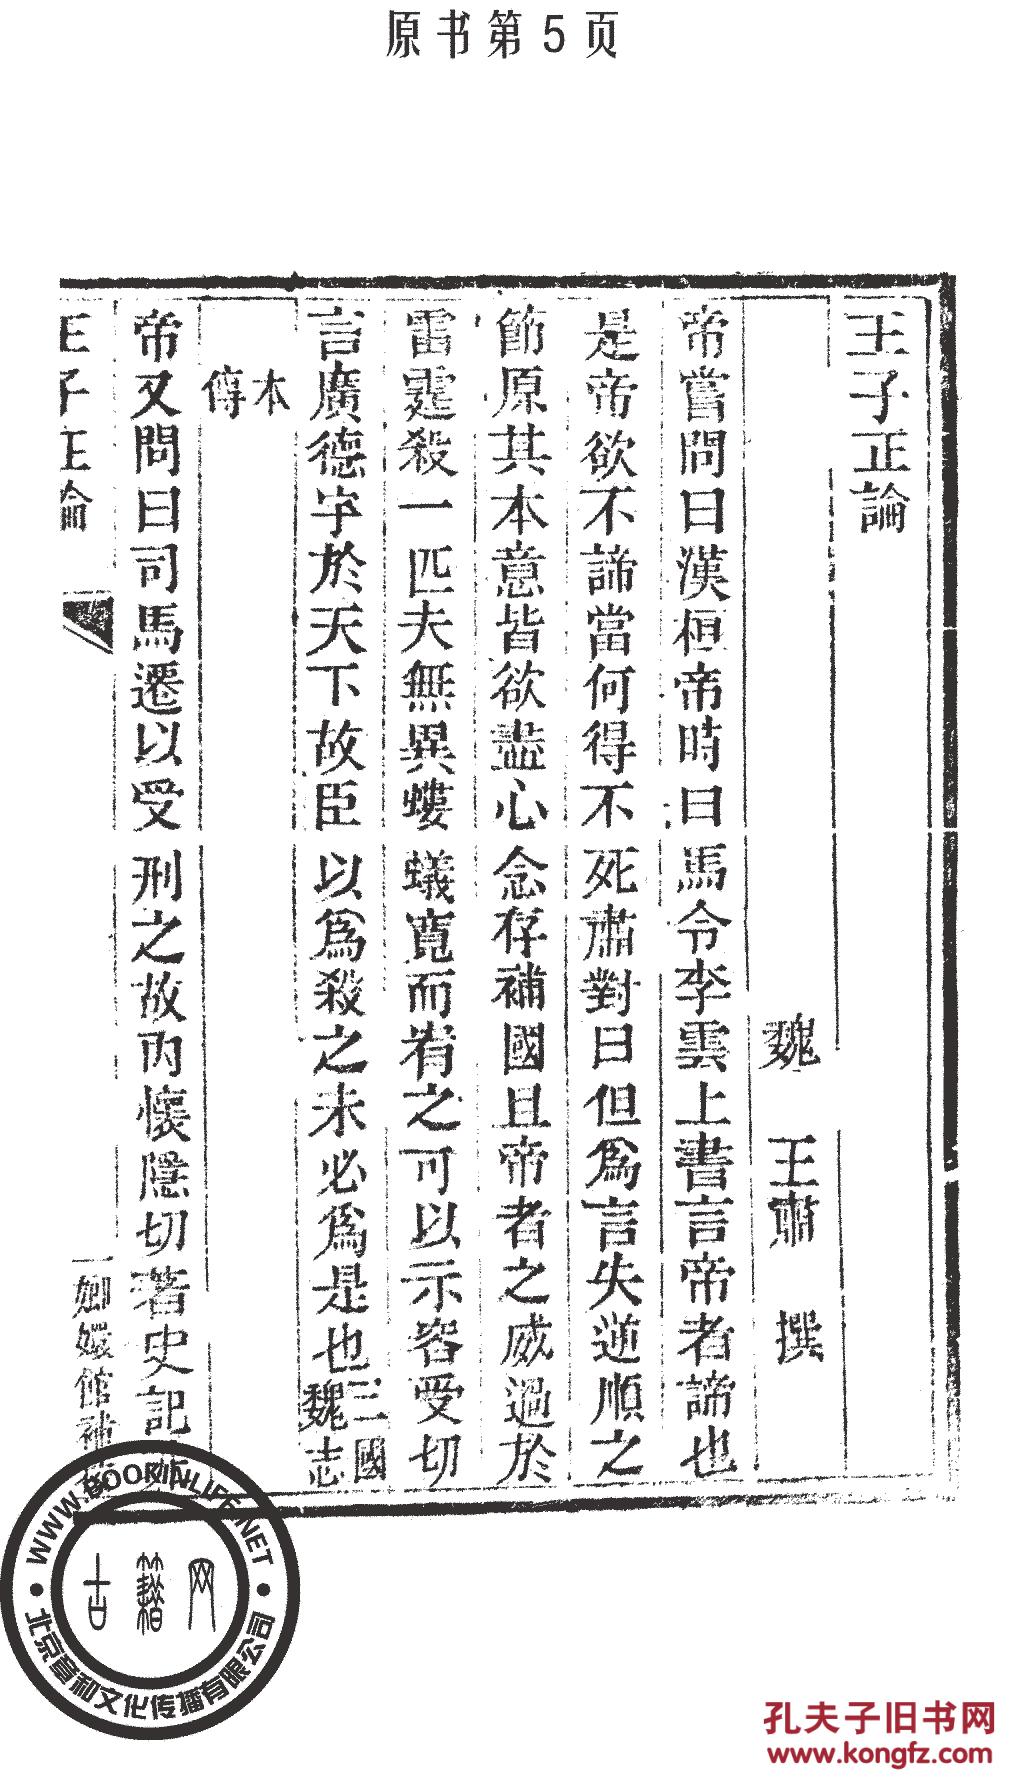 原书第5页
王子正論
魏 王肅 撰
帝嘗問曰漢桓帝時白馬令李雲上書言帝者諦也
是帝欲不諦當何得不死肅對曰但爲言失逆順之
節原其本意皆欲盡心念存補國且帝者之威過於
雷霆殺一匹夫無異螻蟻寬而宥之可以示容受切
言廣德宇於天下故臣以爲殺之未必爲是也三國魏志
本傳
帝又問曰司馬遷以受刑之故内懷隱切著史記
王子正論
一
嫏嬛館補
WWW.BOOKINLIFE.NET
古籍网
北京章和文化传播有限公司
孔夫子旧书网
www.kongfz.com